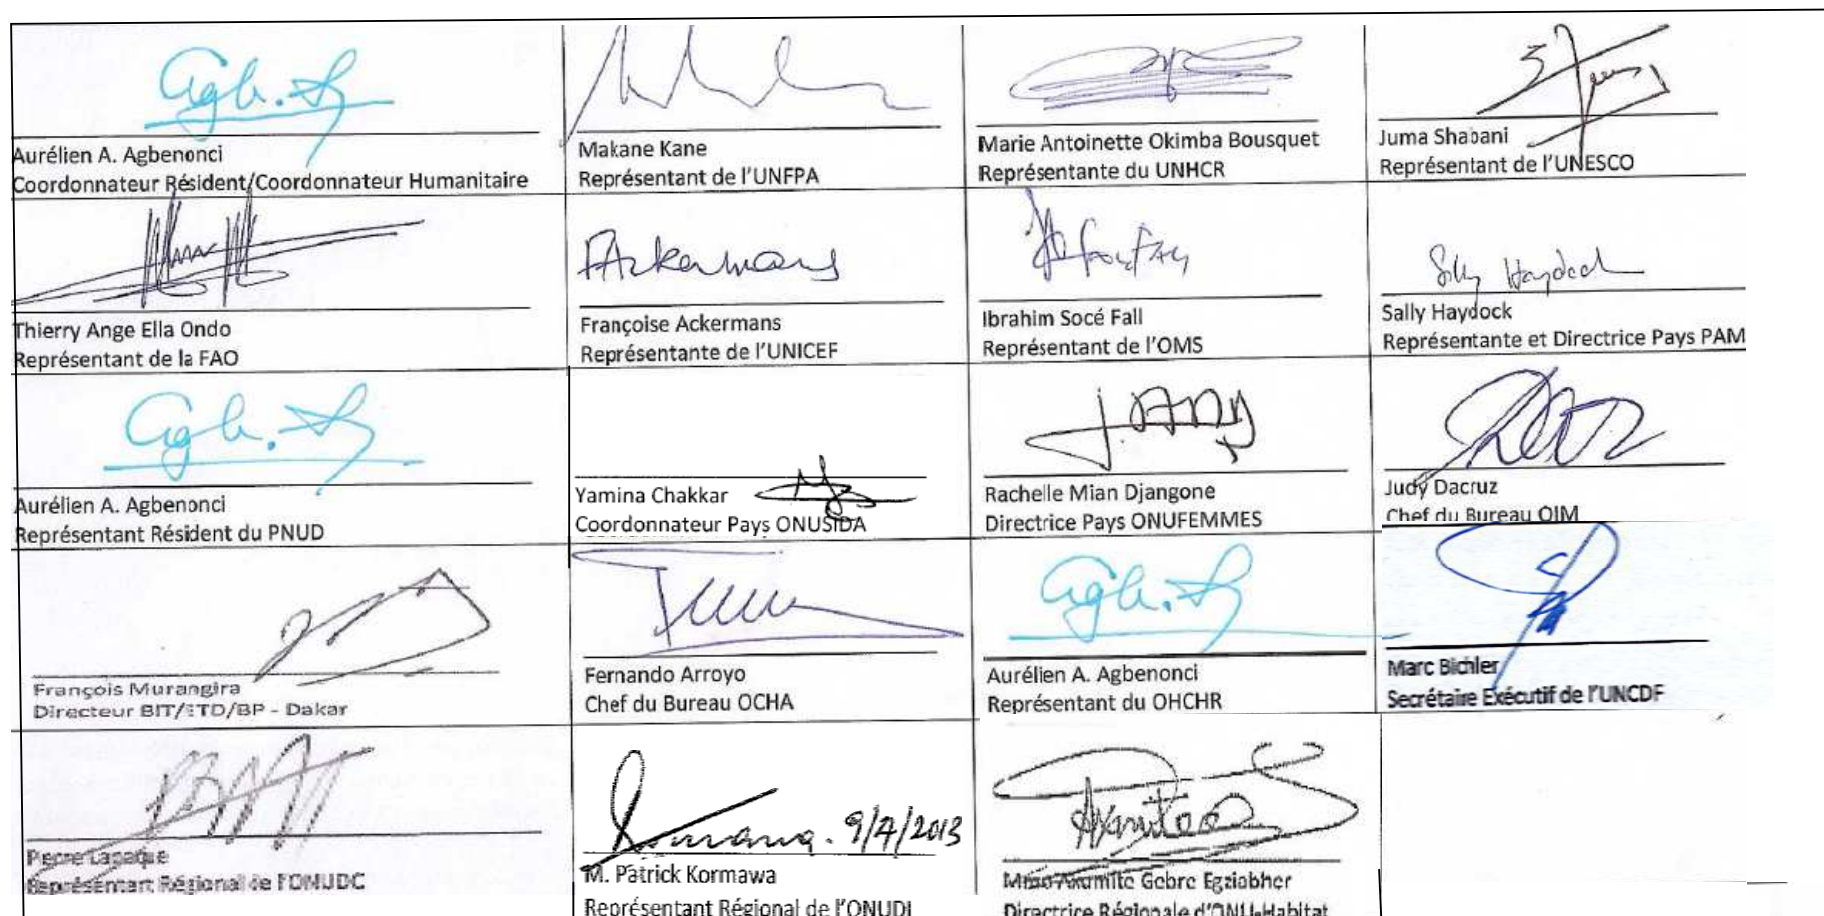 Aurélien A. Agbenonci
Coordonnateur Résident/Coordonnateur Humanitaire
Makane Kane
Représentant de l'UNFPA
Marie Antoinette Okimba Bousquet
Représentante du UNHCR
Juma Shabani
Représentant de l'UNESCO
Thierry Ange Ella Ondo
Représentant de la FAO
FAckermans
Françoise Ackermans
Représentante de l'UNICEF
Ibrahim Socé Fall
Représentant de l'OMS
Sally Haydock
Sally Haydock
Représentante et Directrice Pays PAM
Aurélien A. Agbenonci
Représentant Résident du PNUD
Yamina Chakkar
Coordonnateur Pays ONUSIDA
Rachelle Mian Djangone
Directrice Pays ONUFEMMES
Judy Dacruz
Chef du Bureau OIM
François Murangira
Directeur BIT/ETD/BP - Dakar
Fernando Arroyo
Chef du Bureau OCHA
Aurélien A. Agbenonci
Représentant du OHCHR
Marc Bichler
Secrétaire Exécutif de l'UNCDF
Pierre Lapaque
Représentant Régional de l'ONUDC
9/4/2013
M. Patrick Kormawa
Représentant Régional de l'ONUDI
Mme Axumite Gebre Egziabher
Directrice Régionale d'ONU-Habitat